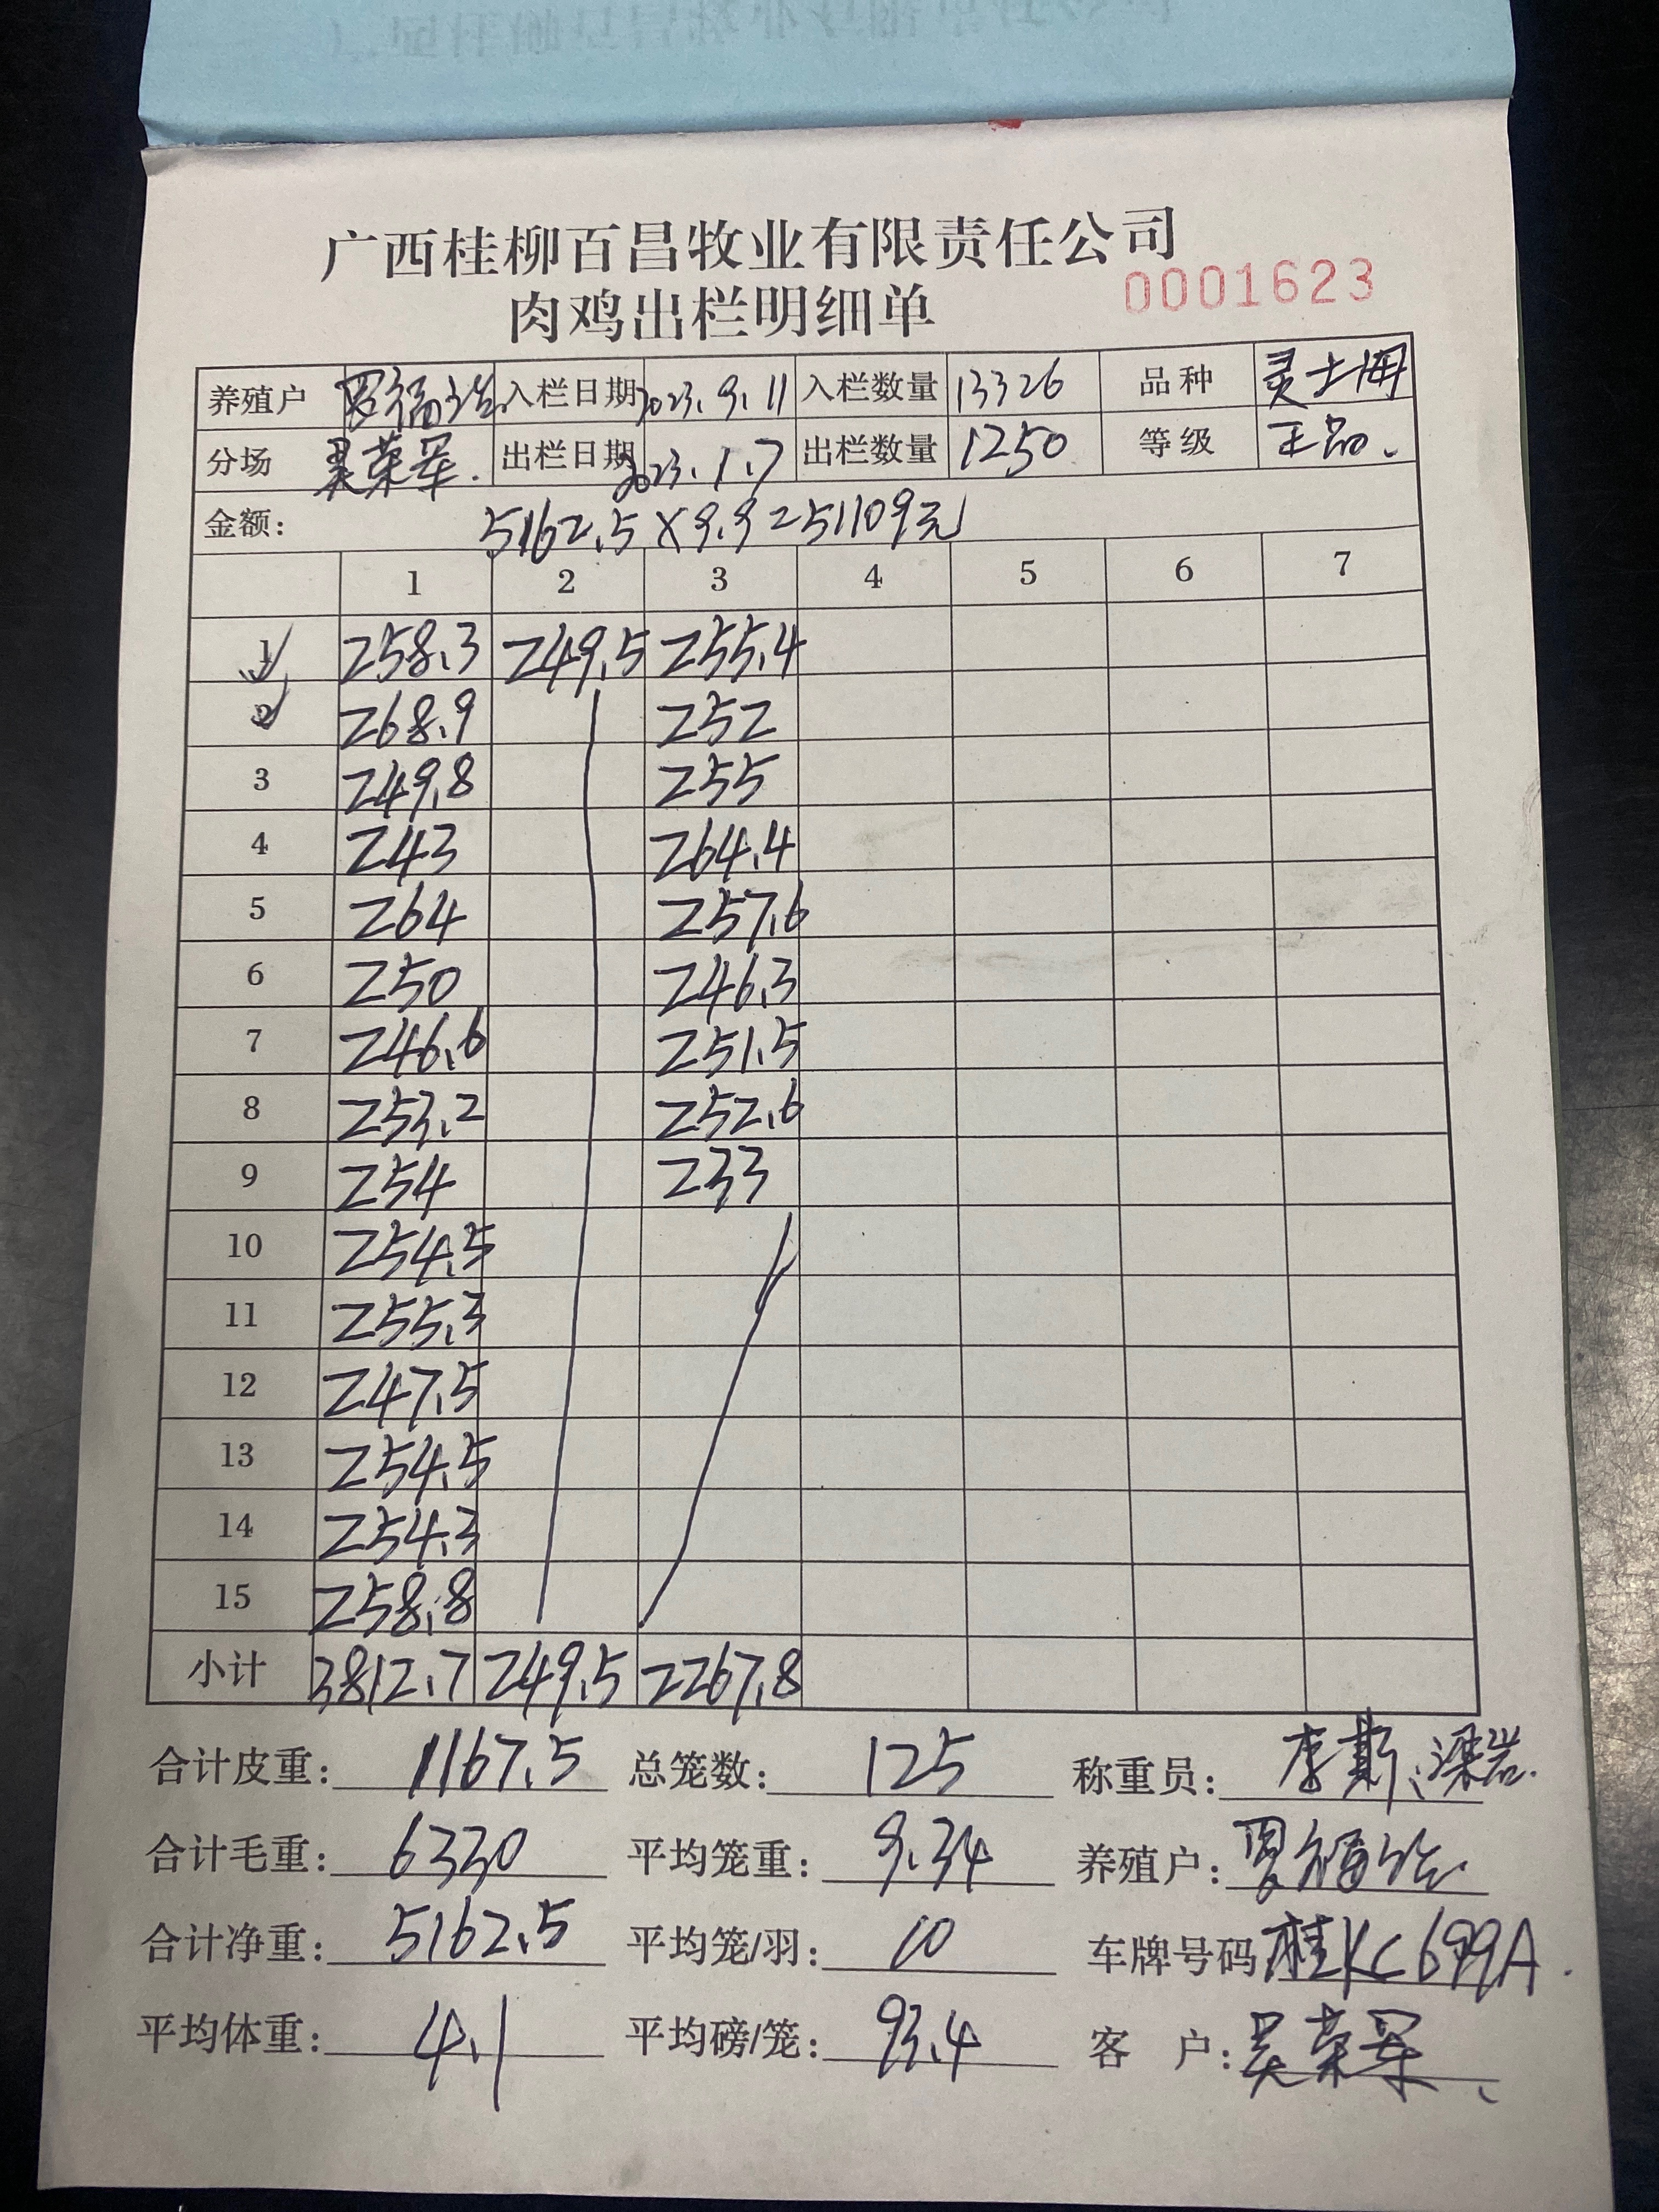 广西桂柳百昌牧业有限责任公司
肉鸡出栏明细单 0001623
养殖户 罗福 入栏日期 2023.9.11 入栏数量 13326 品种 灵士
分场 吴荣军. 出栏日期 2023.1.7 出栏数量 1250 等级 正品、
金额: 5162.5×9.9=51109元
1 2 3 4 5 6 7
1 258.3 249.5 255.4
2 268.9 252
3 249.8 255
4 243 264.4
5 264 257.6
6 250 246.3
7 246.6 251.5
8 253.2 252.6
9 254 233
10 254.5
11 255.3
12 247.5
13 254.5
14 254.3
15 258.8
小计 3812.7 249.5 2267.8
合计皮重: 1167.5 总笼数: 125 称重员: 李斯、梁岩.
合计毛重: 6330 平均笼重: 9.34 养殖户: 罗福
合计净重: 5162.5 平均笼/羽: 10 车牌号码 桂KC699A.
平均体重: 4.1 平均磅/笼: 93.4 客 户: 吴荣军、